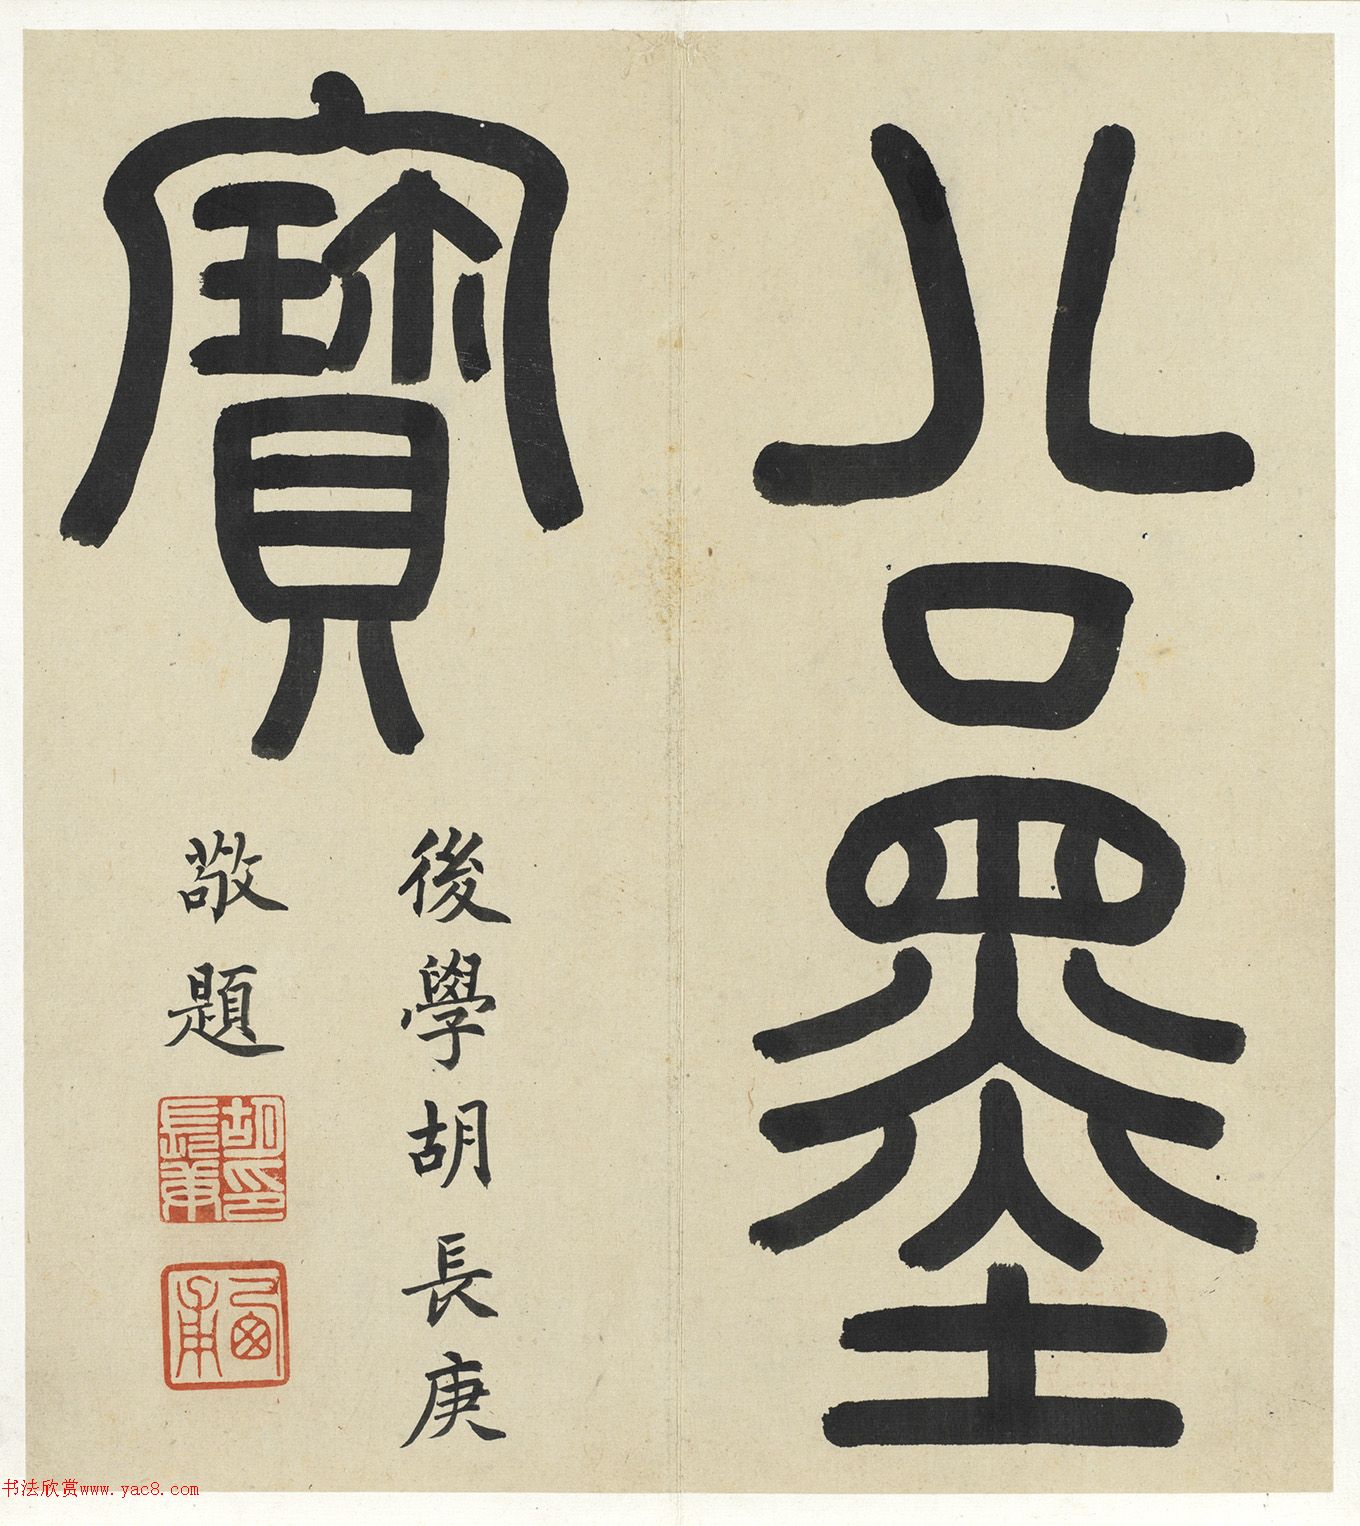 公墨
寶
後學胡長庚
敬題
胡印
長庚
西甫
书法欣赏www.yac8.com